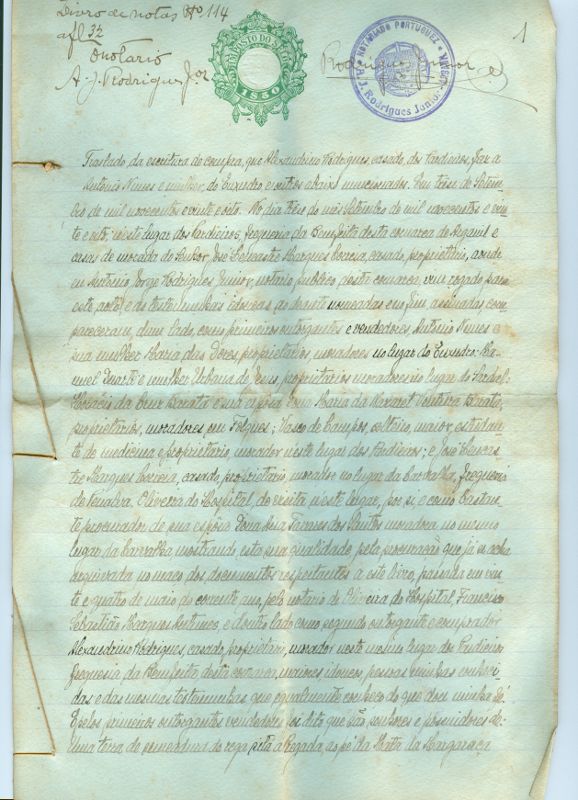 Livro de notas Nº 114
afl 32
O notario
A. J. Rodrigues J.or
1
IMPOSTO DO SELO
1$50
NOTARIADO PORTUGUEZ
A. J. Rodrigues Junior
Rodrigues Junior
Traslado da escritura de compra, que Alexandrino Rodrigues, casado, dos Pardieiros, fez a
Antonio Nunes e mulher, do Enxudro e outros abaixo mencionados. Em treze de Setem-
bro de mil novecentos e vinte e oito. No dia treze do mês Setembro de mil novecentos e vin-
te e oito, neste lugar dos Pardieiros, freguesia da Bemfeita desta comarca de Arganil e
casas de morada do Senhor José Lencastre Marques Correia, casado, proprietário, aonde
eu Antonio Jorge Rodrigues Junior, notario publico nesta comarca, vim rogado para
este acto e as testemunhas idoneas ao deante nomeadas e no fim assinadas, com
pareceram, dum lado, como primeiros outorgantes e vendedores Antonio Nunes e
sua mulher Maria das Dores, proprietarios, moradores no lugar do Enxudro; Ma-
nuel Duarte e mulher Urbana de Jesus, proprietarios moradores no lugar do Sardal;
da Cruz Barata e sua esposa Dona Maria da Nazaret Ventura Barata,
proprietarios, moradores em Folques; Vasco de Campos, solteiro, maior, estudan-
te de medicina e proprietario, morador neste lugar dos Pardieiros; e José Lencas-
tre Marques Correia, casado, proprietario, morador no lugar da Carvalha, freguesia
de Penalva, Oliveira do Hospital, de visita neste lugar, por si, e como bastan-
te procurador de sua esposa Dona Tavares dos Santos moradora no mesmo
lugar da Carvalha mostrando esta sua qualidade, pela procuração que já se acha
arquivada no maço dos documentos respeitantes a este livro, passada em vin-
te e quatro de maio do corrente ano, pelo notario de Oliveira do Hospital Francisco
Sebastião Marques Antunes, e doutro lado como segundo outorgante e comprador
Alexandrino Rodrigues, casado, proprietario, morador neste mesmo lugar de Pardieiros,
freguesia da Bemfeita, desta comarca, maiores idoneos, pessoas minhas conheci-
das e das mesmas testemunhas, que egualmente conheço do que dou minha fé.
E pelos primeiros outorgantes vendedores foi dito que são senhores e possuidores de:
Uma terra de semeadura de rega, sita á Regada, ao pé da Mata da Margaraça